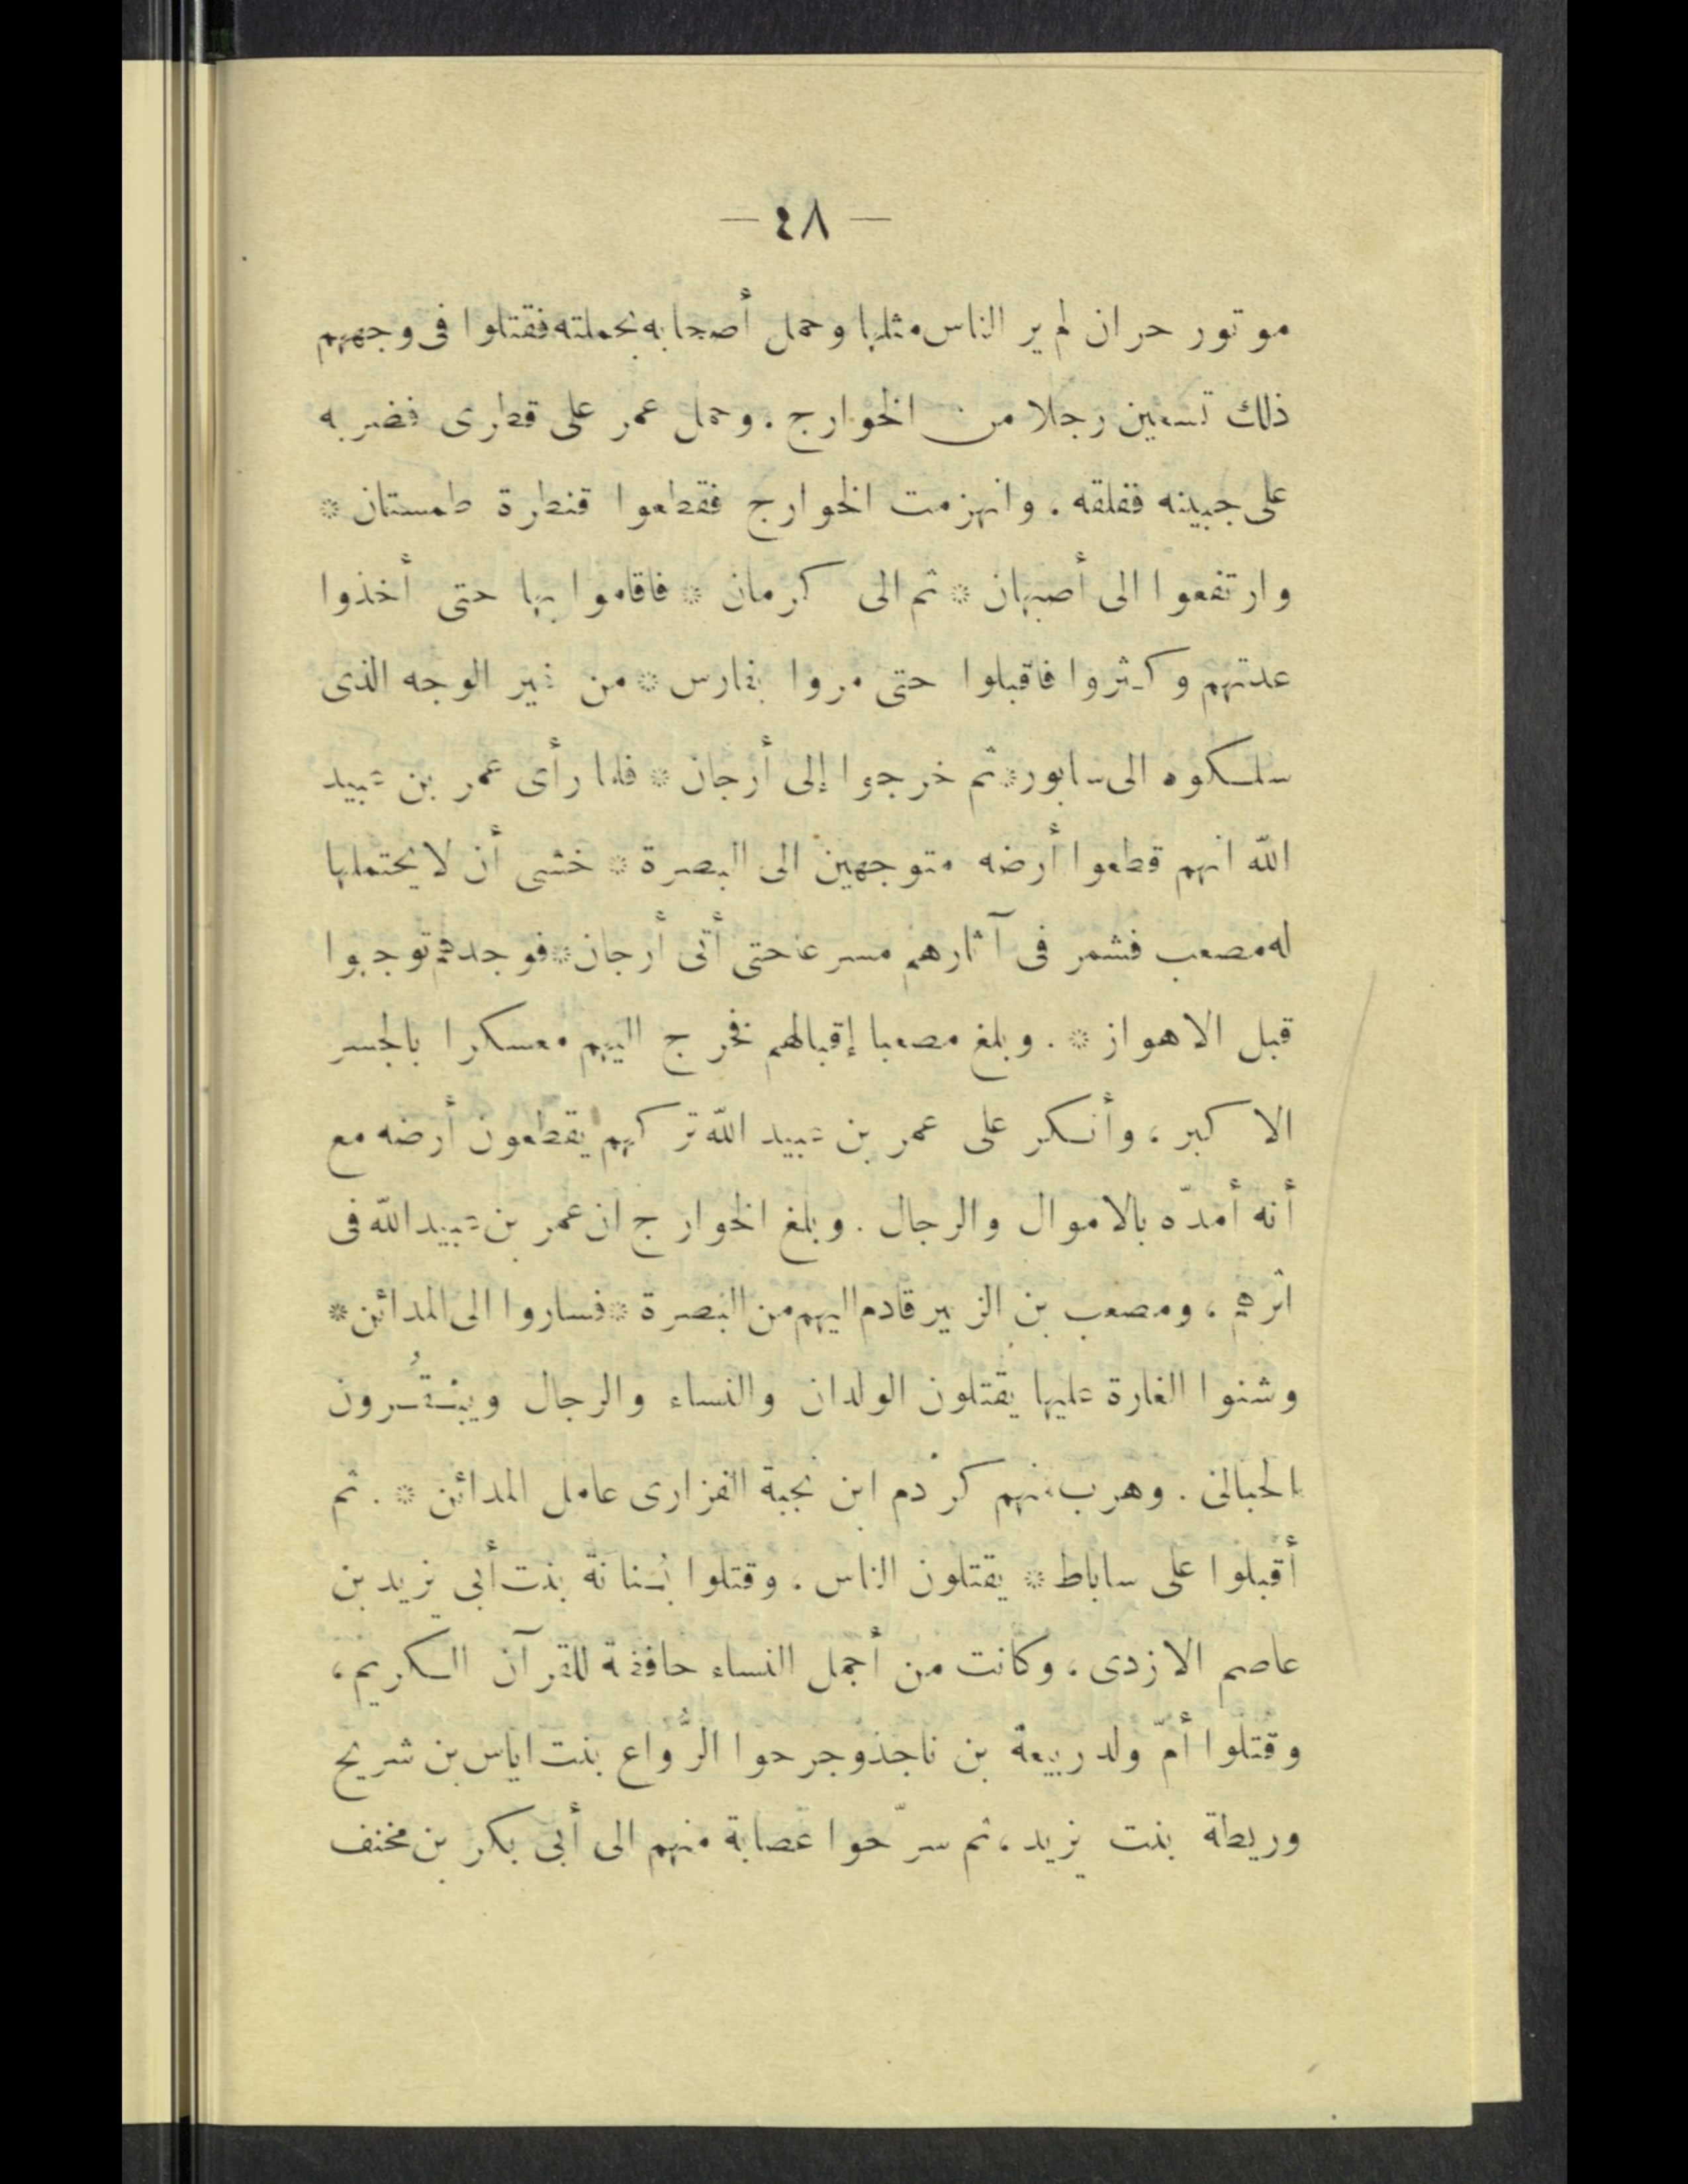 — ٤٨ —
موتور حران لم ير الناس مثلها وحمل أصحابه بحملته فقتلوا فى وجههم
ذلك تسعين رجلا من الخوارج . وحمل عمر على قطرى فضربه
على جبينه ففلقه ، وانهزمت الخوارج فقطعوا قنطرة طمستان *
وارتفعوا الى أصبهان * ثم الى كرمان * فاقاموا بها حتى أخذوا
عدتهم وكثروا فاقبلوا حتى مروا بفارس * من غير الوجه الذى
سلكوه الى سابور * ثم خرجوا إلى أرجان * فلما رأى عمر بن عبيد
اللّه انهم قطعوا أرضه متوجهين الى البصرة * خشى أن لا يحتملها
له مصعب فشمر فى آثارهم مسرعا حتى أتى أرجان * فوجدهم توجهوا
قبل الاهواز * . وبلغ مصعبا إقبالهم فخرج اليهم معسكرا بالجسر
الاكبر ، وأنكر على عمر بن عبيد اللّه تركهم يقطعون أرضه مع
أنه أمدّه بالاموال والرجال . وبلغ الخوارج ان عمر بن عبيد اللّه فى
اثرهم ، ومصعب بن الزبير قادم اليهم من البصرة * فساروا الى المدائن *
وشنوا الغارة عليها يقتلون الولدان والنساء والرجال ويبقُرون
الحبالى . وهرب منهم كردم ابن نجبة الفزارى عامل المدائن * . ثم
أقبلوا على ساباط * يقتلون الناس ، وقتلوا بُنانة بنت أبى يزيد بن
عاصم الازدى ، وكانت من أجمل النساء حافظة للقرآن الكريم ،
وقتلوا أمّ ولد ربيعة بن ناجذ وجرحوا الرُّواع بنت اياس بن شريح
وريطة بنت يزيد ، ثم سرّحوا عصابة منهم الى أبى بكر بن مخنف